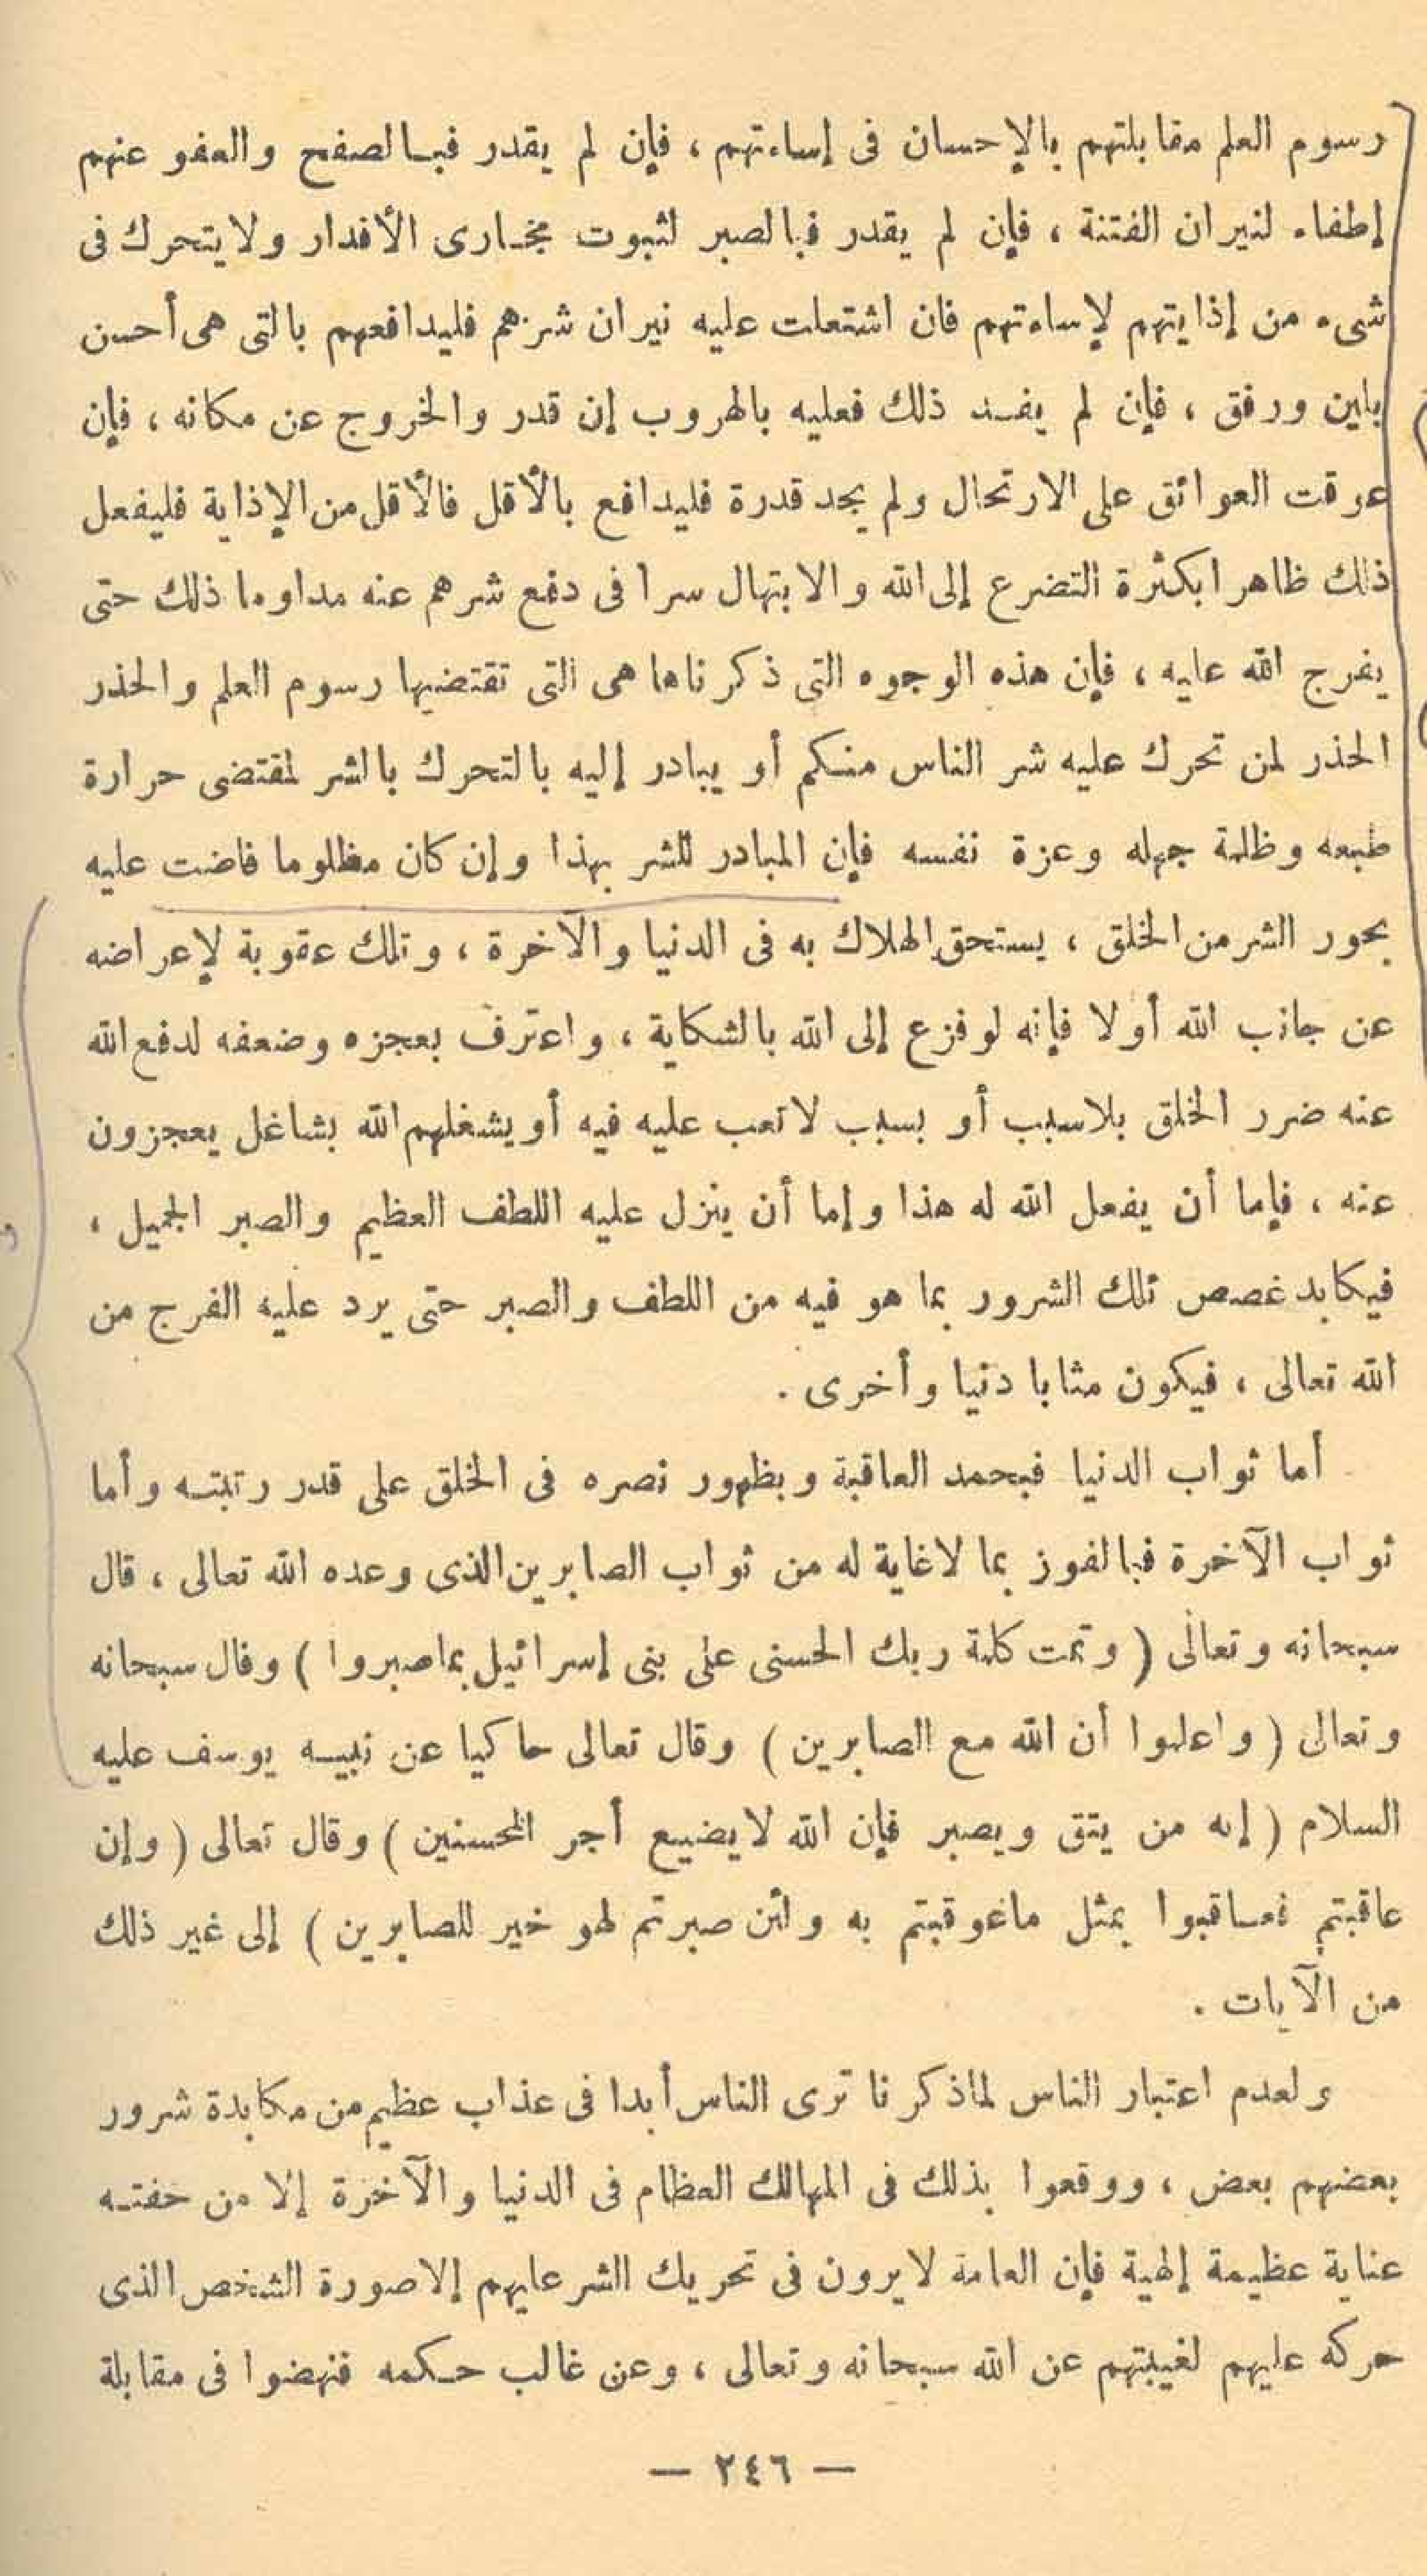 رسوم العلم مقابلتهم بالإحسان فى إساءتهم ، فإن لم يقدر فبالصفح والعفو عنهم
إطفاء لنيران الفتنة ، فإن لم يقدر فبالصبر لثبوت مجارى الأقدار ولا يتحرك فى
شىء من إذايتهم لإساءتهم فان اشتعلت عليه نيران شرهم فليدافعهم بالتى هى أحسن
بلين ورفق ، فإن لم يفد ذلك فعليه بالهروب إن قدر والخروج عن مكانه ، فإن
عوقت العوائق على الارتحال ولم يجد قدرة فليدافع بالأقل فالأقل من الإذاية فليفعل
ذلك ظاهرا بكثرة التضرع إلى الله والابتهال سرا فى دفع شرهم عنه مداوما ذلك حتى
يفرج الله عليه ، فإن هذه الوجوه التى ذكرناها هى التى تقتضيها رسوم العلم والحذر
الحذر لمن تحرك عليه شر الناس منكم أو يبادر إليه بالتحرك بالشر لمقتضى حرارة
طبعه وظلمة جهله وعزة نفسه فإن المبادر للشر بهذا وإن كان مظلوما فاضت عليه
بحور الشر من الخلق ، يستحق الهلاك به فى الدنيا والآخرة ، وتلك عقوبة لإعراضه
عن جانب الله أولا فإنه لو فزع إلى الله بالشكاية ، واعترف بعجزه وضعفه لدفع الله
عنه ضرر الخلق بلا سبب أو بسبب لا تعب عليه فيه أو يشغلهم الله بشاغل يعجزون
عنه ، فإما أن يفعل الله له هذا وإما أن ينزل عليه اللطف العظيم والصبر الجميل ،
فيكابد غصص تلك الشرور بما هو فيه من اللطف والصبر حتى يرد عليه الفرج من
الله تعالى ، فيكون مثابا دنيا وأخرى .
أما ثواب الدنيا فبحمد العاقبة وبظهور نصره فى الخلق على قدر رتبته وأما
ثواب الآخرة فبالفوز بما لا غاية له من ثواب الصابرين الذى وعده الله تعالى ، قال
سبحانه وتعالى ( وتمت كلمة ربك الحسنى على بنى إسرائيل بما صبروا ) وقال سبحانه
وتعالى ( واعلموا أن الله مع الصابرين ) وقال تعالى حاكيا عن نبيه يوسف عليه
السلام ( إنه من يتق ويصبر فإن الله لا يضيع أجر المحسنين ) وقال تعالى ( وإن
عاقبتم فعاقبوا بمثل ما عوقبتم به ولئن صبرتم لهو خير للصابرين ) إلى غير ذلك
من الآيات .
ولعدم اعتبار الناس لما ذكرنا ترى الناس أبدا فى عذاب عظيم من مكابدة شرور
بعضهم بعض ، ووقعوا بذلك فى المهالك العظام فى الدنيا والآخرة إلا من حفته
عناية عظيمة إلهية فإن العامة لا يرون فى تحريك الشر عليهم إلا صورة الشخص الذى
حركه عليهم لغيبتهم عن الله سبحانه وتعالى ، وعن غالب حكمه فنهضوا فى مقابلة
— ٢٤٦ —